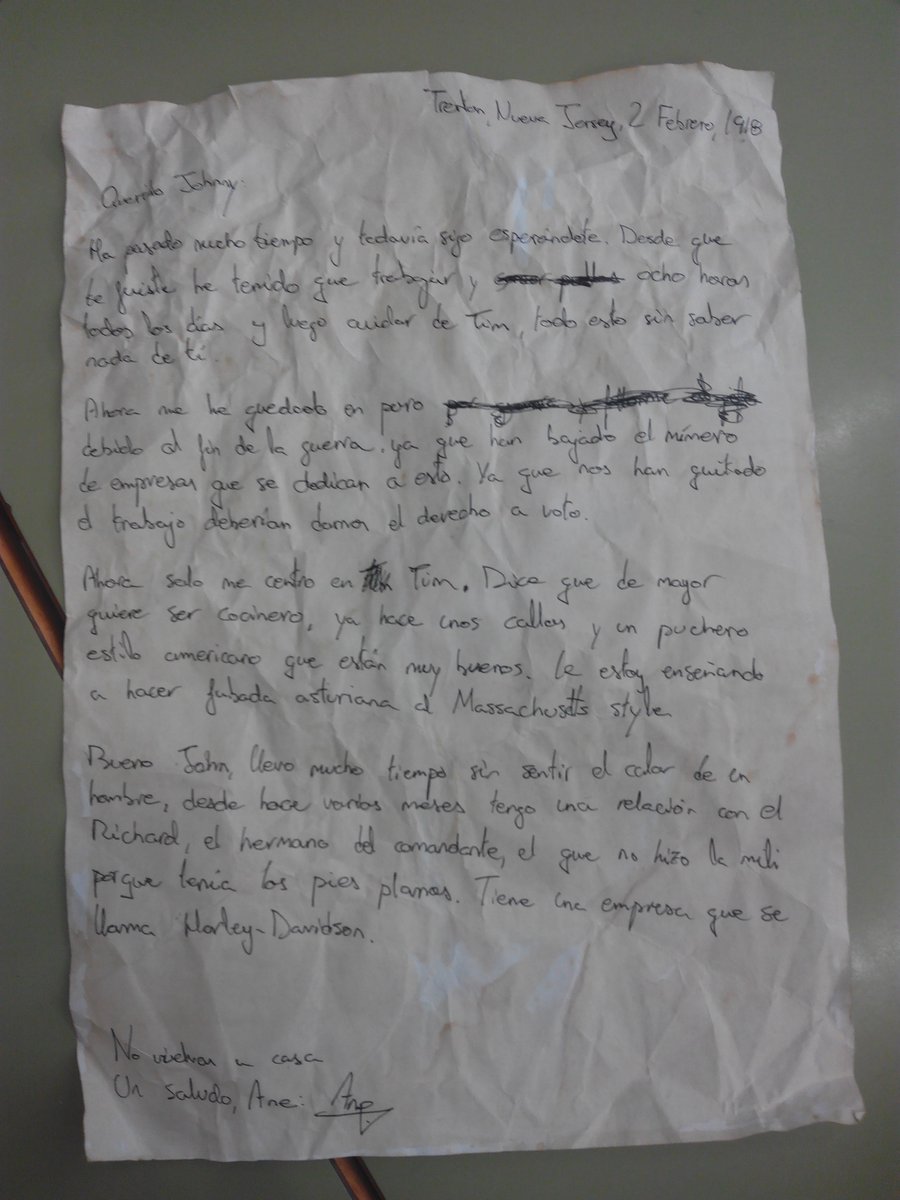 Trenton, Nueva Jersey, 2 Febrero, 1918
Querido Johnny:
Ha pasado mucho tiempo y todavía sigo esperándote. Desde que
te fuiste he tenido que trabajar y ocho horas
todos los días y luego cuidar de Tim, todo esto sin saber
nada de ti.
Ahora me he quedado en paro
debido al fin de la guerra, ya que han bajado el número
de empresas que se dedican a esto. Ya que nos han quitado
el trabajo deberían darnos el derecho a voto.
Ahora solo me centro en Tim. Dice que de mayor
quiere ser cocinero, ya hace unos callos y un puchero
estilo americano que están muy buenos. Le estoy enseñando
a hacer fabada asturiana al Massachusetts style.
Bueno John, llevo mucho tiempo sin sentir el calor de un
hombre, desde hace varios meses tengo una relación con el
Richard, el hermano del comandante, el que no hizo la mili
porque tenía los pies planos. Tiene una empresa que se
llama Harley-Davidson.
No vuelvas a casa
Un saludo, Ane: Ane